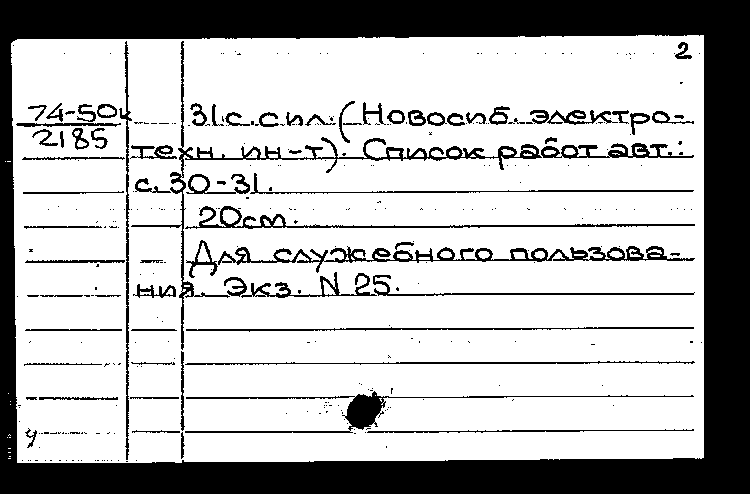 2
74-50к
2185
31.с. с ил. (Новосиб. электро-
техн. ин-т). Список работ авт.:
с. 30-31.
20см.
Для служебного пользова-
ния. Экз. N 25.
ч